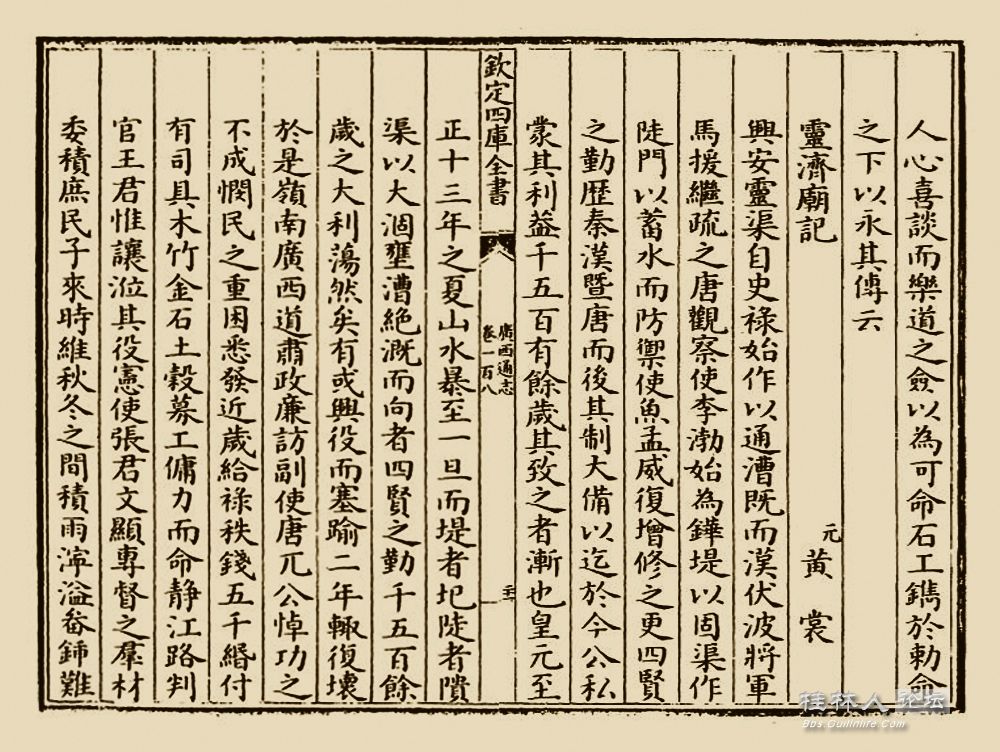 人心喜談而樂道之僉以為可命石工鐫於勅命
之下以永其傳云
靈濟廟記
元
黄裳
興安靈渠自史祿始作以通漕既而漢伏波將軍
馬援繼疏之唐觀察使李渤始為鏵堤以固渠作
陡門以蓄水而防禦使魚孟威復增修之更四賢
之勤歴秦漢暨唐而後其制大備以迄於今公私
蒙其利益千五百有餘歲其致之者漸也皇元至
欽定四庫全書
廣西通志
卷一百八
正十三年之夏山水暴至一旦而堤者圮陡者隤
渠以大涸壅漕絶溉而向者四賢之勤千五百餘
歲之大利蕩然矣有或興役而塞踰二年輒復壞
於是嶺南廣西道肅政廉訪副使唐兀公悼功之
不成憫民之重困悉發近歲給祿秩錢五千緡付
有司具木竹金石土穀募工傭力而命静江路判
官王君惟讓涖其役憲使張君文顯專督之羣材
委積庶民子來時維秋冬之間積雨濘溢畚鍤難
桂林人论坛
Bbs.Guilinlife.Com